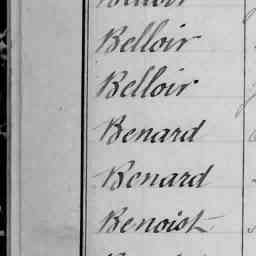 Belloir
Belloir
Benard
Benard
Benoist